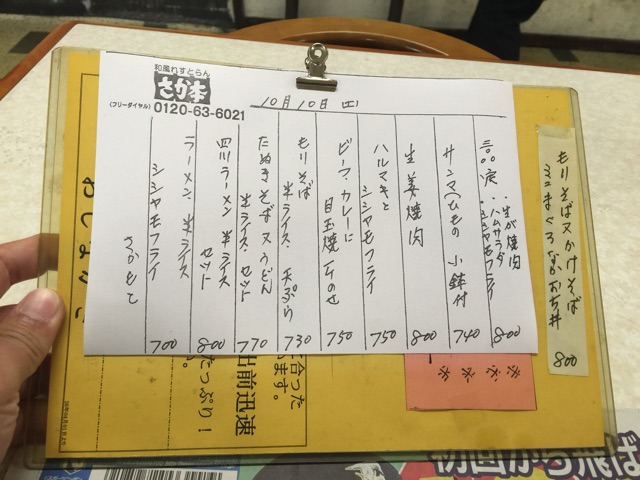 和風れすとらん
さか本
(フリーダイヤル) 0120-63-6021
10月10日 (土)
もりそば又かけそば
ミニまぐろなかおち丼
800
・生が焼肉
・ハムサラダ
・シシャモフライ
800
サンマひもの 小鉢付
740
生姜焼肉
800
ハルマキと
シシャモフライ
750
ビーフカレーに
目玉焼1ケのせ
750
もりそば
半ライス、天ぷら
730
たぬきそば又うどん
半ライス セット
770
四川ラーメン 半ライス
セット
800
ラーメン 半ライス
シシャモフライ
700
さかもと
※※※※
合った
ます。
出前迅速
たっぷり!
初回から飛ば